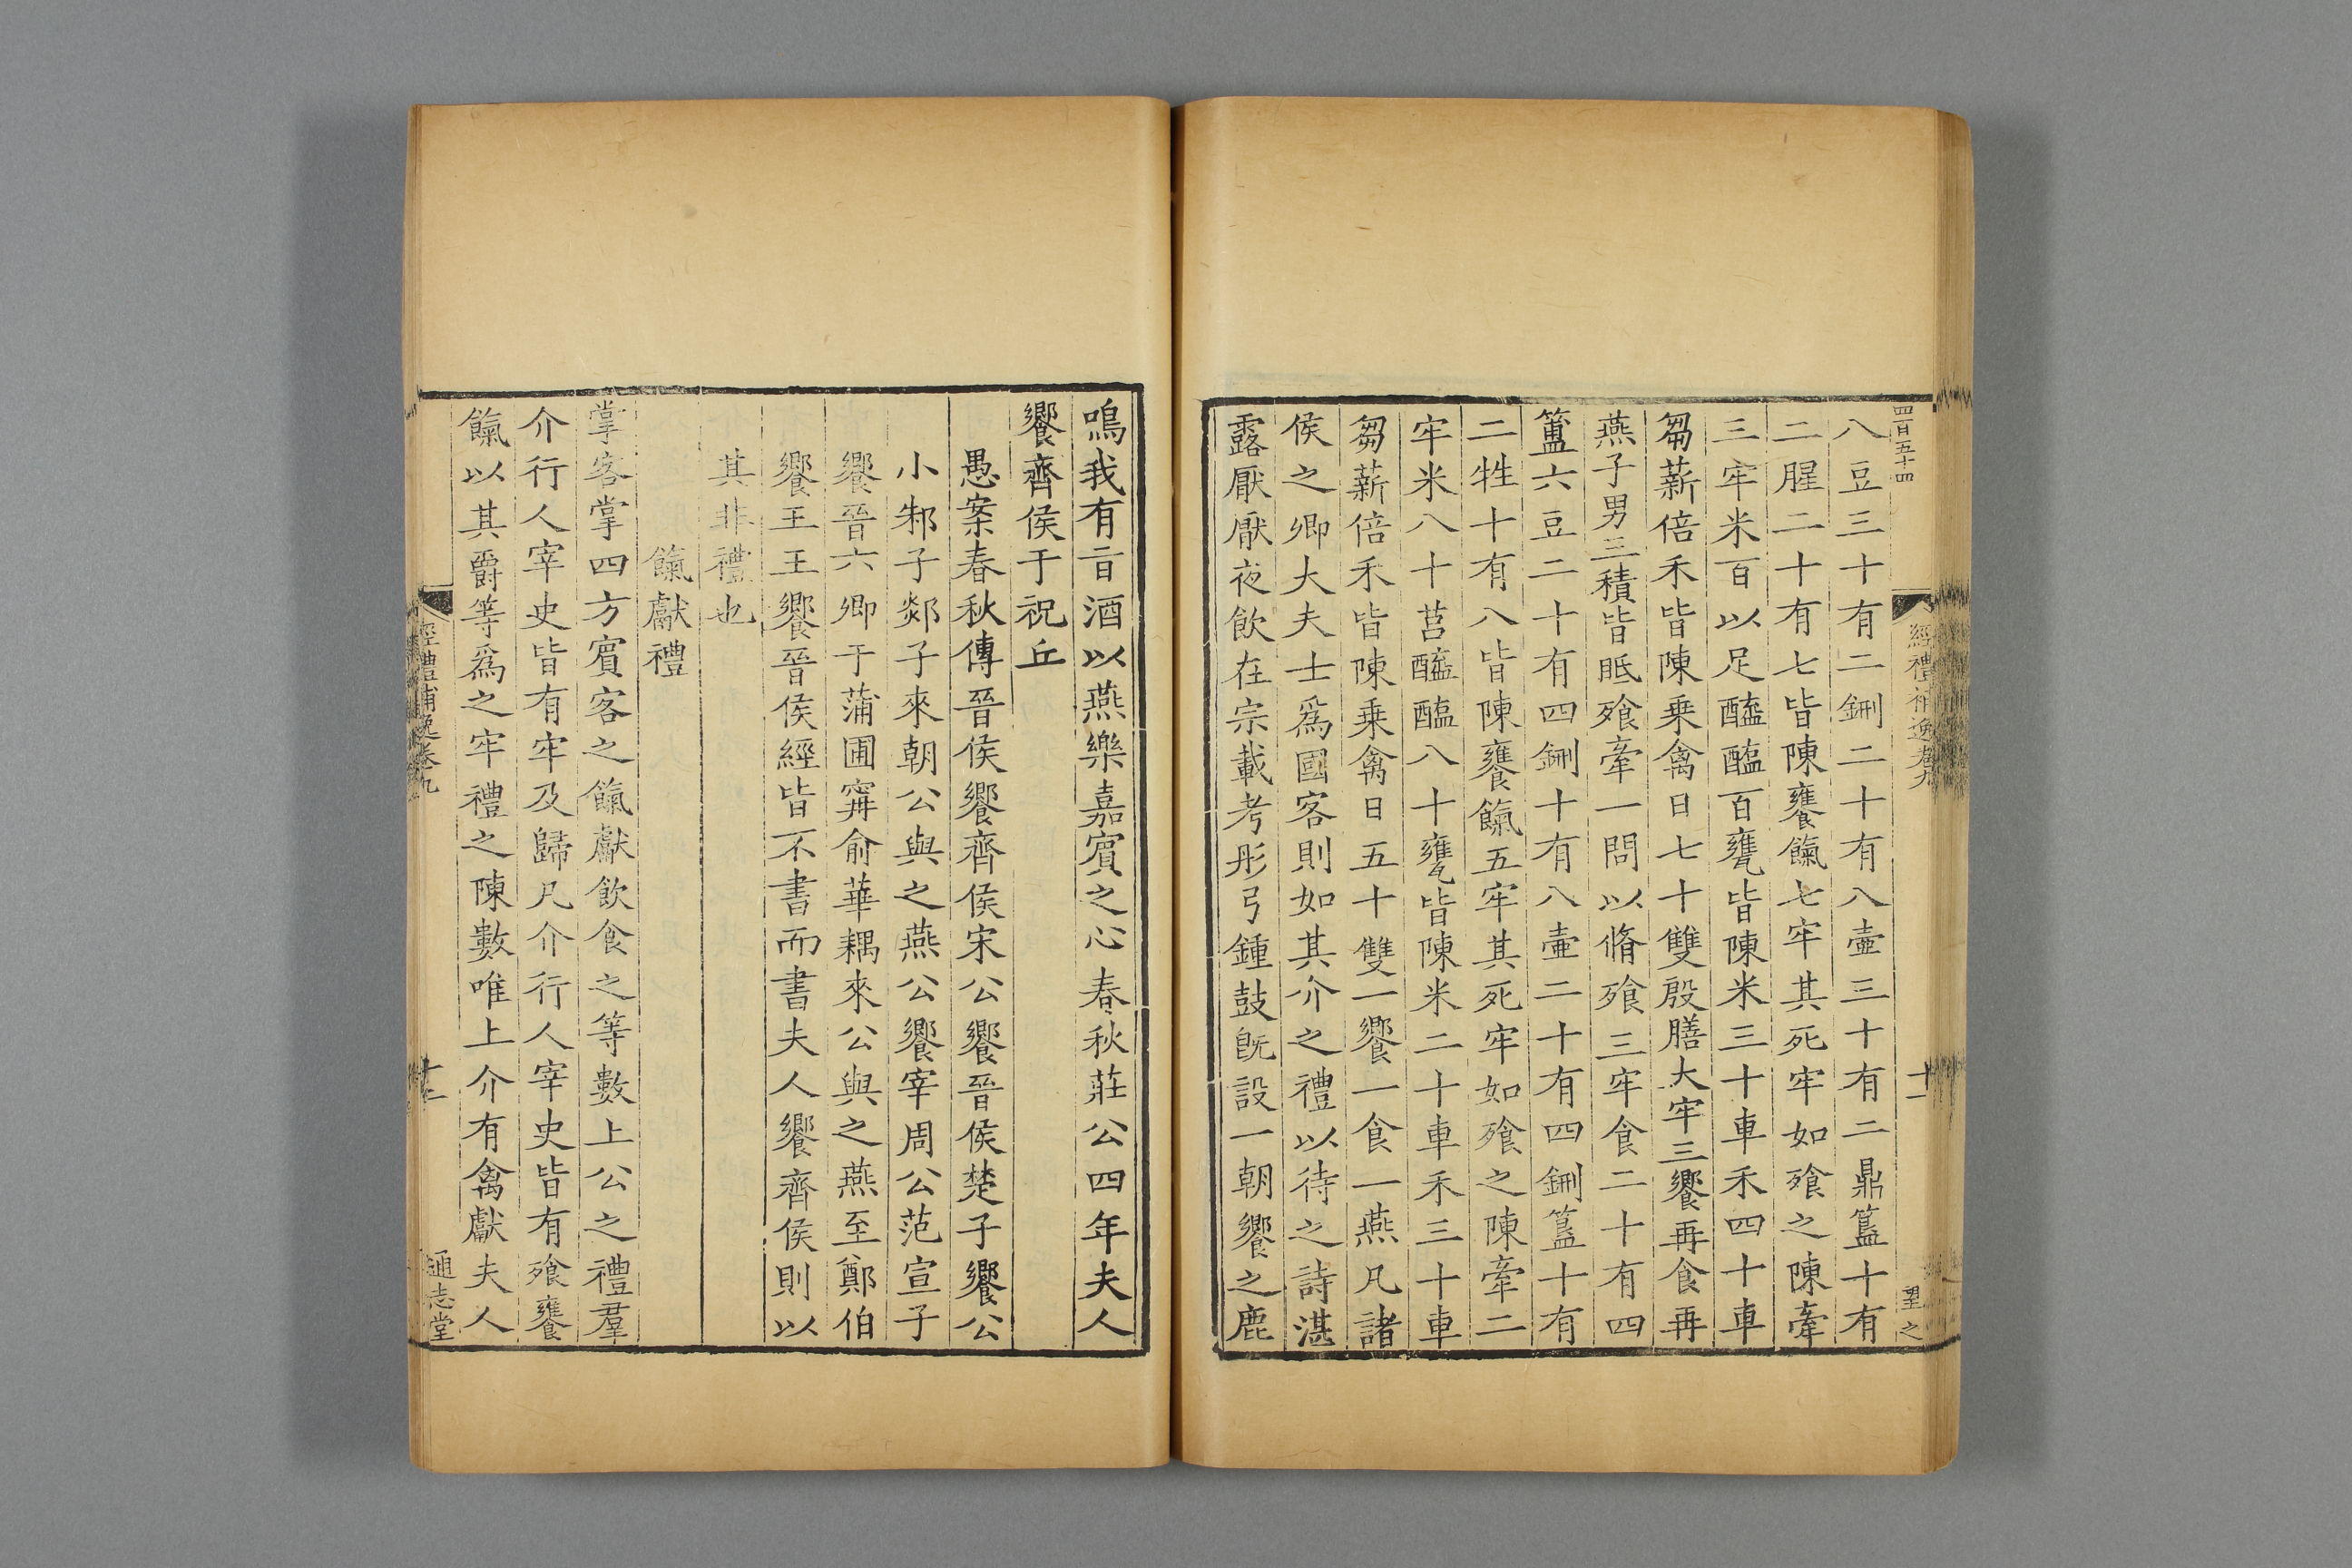 四百五十四
經禮補逸卷九
十一
望之
八豆三十有二鉶二十有八壷三十有二鼎簋十有
二腥二十有七皆陳饔餼七牢其死牢如飱之陳牽
三牢米百以足醯醢百罋皆陳米三十車禾四十車
芻薪倍禾皆陳乗禽日七十雙殷膳大牢三饗再食再
燕子男三積皆眡飱牽一問以脩飱三牢食二十有四
簠六豆二十有四鉶十有八壷二十有四鉶簋十有
二牲十有八皆陳饔餼五牢其死牢如飱之陳牽二
牢米八十莒醯醢八十罋皆陳米二十車禾三十車
芻薪倍禾皆陳乗禽日五十雙一饗一食一燕凡諸
侯之卿大夫士爲國客則如其介之禮以待之詩湛
露厭厭夜飲在宗載考彤弓鍾鼓旣設一朝饗之鹿
鳴我有㫖酒以燕樂嘉賔之心春秋莊公四年夫人
饗齊侯于祝丘
愚案春秋傳晉侯饗齊侯宋公饗晉侯楚子饗公
小邾子郯子來朝公與之燕公饗宰周公范宣子
饗晉六卿于蒲圃甯俞華耦來公與之燕至鄭伯
饗王王饗晉侯經皆不書而書夫人饗齊侯則以
其非禮也
餼獻禮
掌客掌四方賔客之餼獻飲食之等數上公之禮羣
介行人宰史皆有牢及歸凡介行人宰史皆有飱饔
餼以其爵等爲之牢禮之陳數唯上介有禽獻夫人
經禮補逸卷九
十二
通志堂